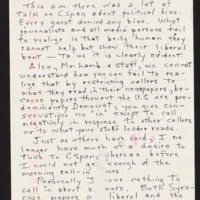 This a.m. there was a lot of
talk on CSpan about political bias.
Every guest denied any bias. What
journalists and all media persons fail
to realize is that being human they
cannot help but show their liberal
bent — to us it is clearly evident.
Also, Mr. Lamb & staff, we cannot
understand how you can fail to rea-
lize that by restricting callers to
what they read in their newspapers, be-
cause papers through the U.S. are pre-
dominantly Democrat you give con-
servatives no in except to call
negatively in response to other callers
or to what your staff leader reads.
Just as others have said, I no
longer have much of a desire to
tune to CSpan, whereas before
I could not enough of the
morning call-in
I have nothing to
call in about a more. Both Syra-
cuse papers liberal and the